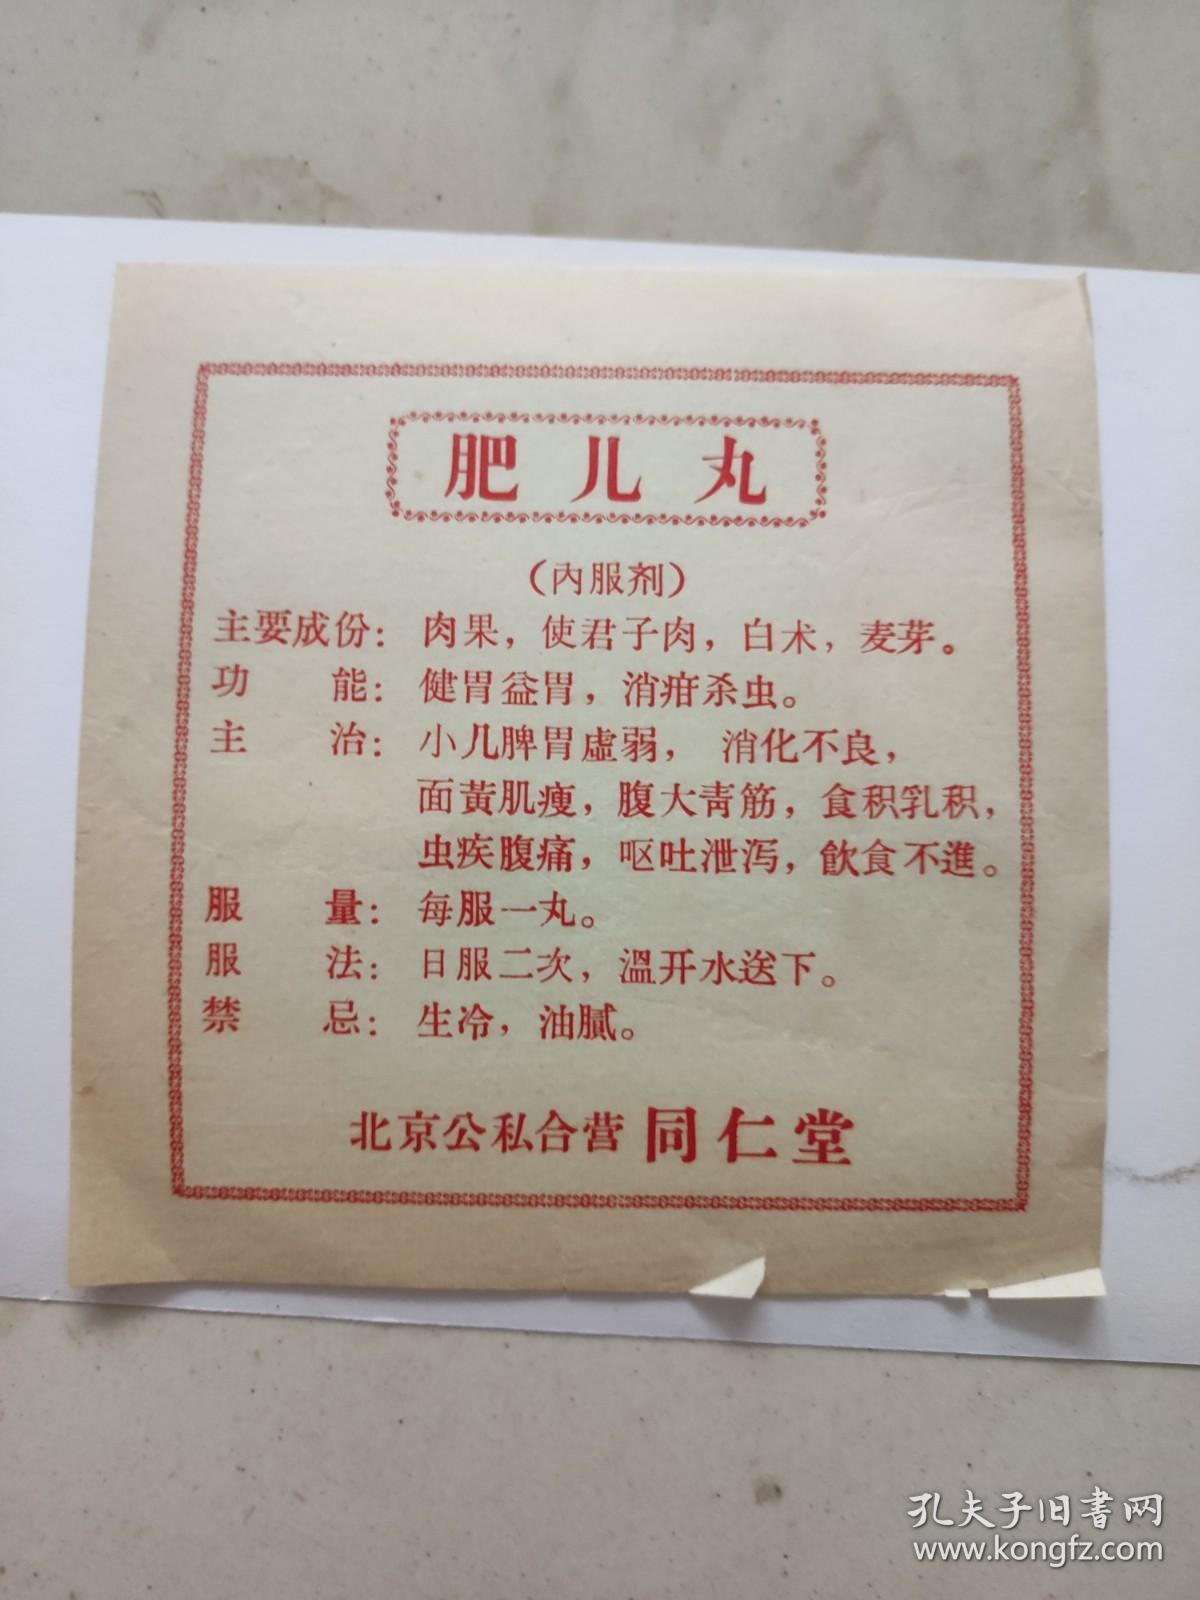 肥儿丸
（内服剂）
主要成份：肉果，使君子肉，白术，麦芽。
功能：健胃益胃，消疳杀虫。
主治：小儿脾胃虚弱，消化不良，
面黄肌瘦，腹大青筋，食积乳积，
虫疾腹痛，呕吐泄泻，飲食不進。
服量：每服一丸。
服法：日服二次，溫开水送下。
禁忌：生冷，油腻。
北京公私合营同仁堂
孔夫子旧书网
www.kongfz.com